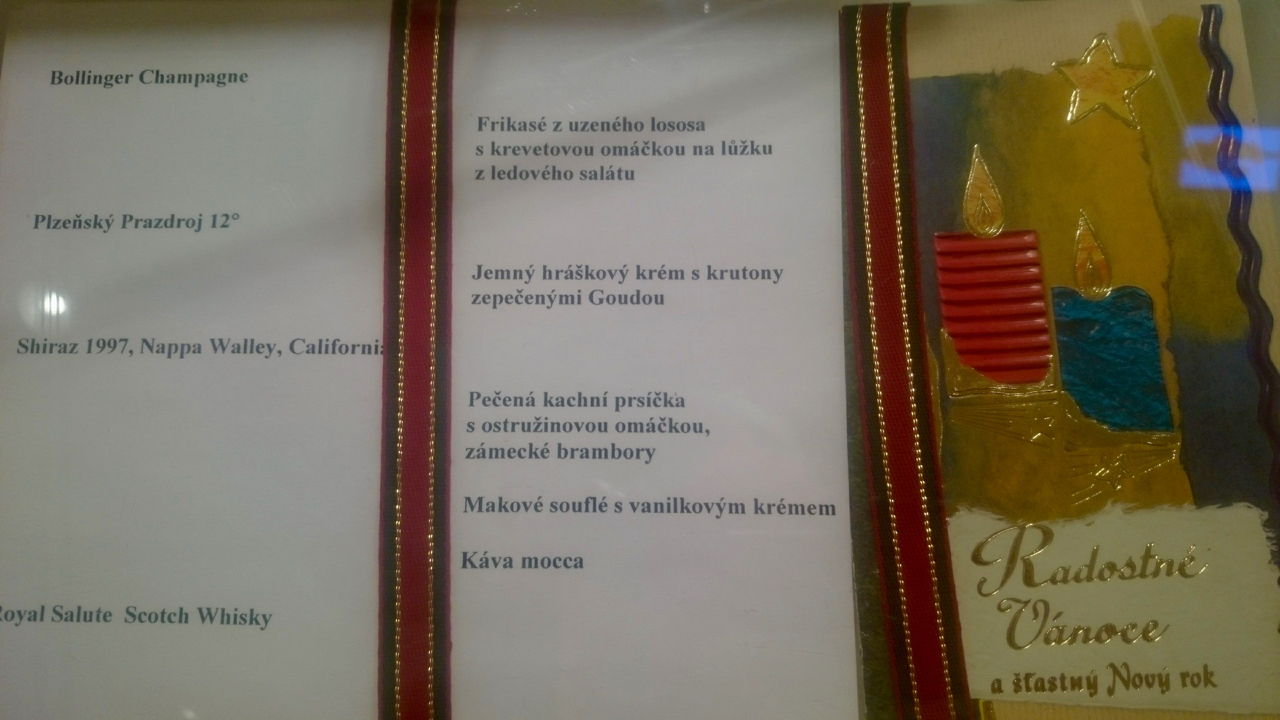 Bollinger Champagne
Plzeňský Prazdroj 12°
Shiraz 1997, Nappa Walley, California
Royal Salute Scotch Whisky
Frikasé z uzeného lososa
s krevetovou omáčkou na lůžku
z ledového salátu
Jemný hráškový krém s krutony
zepečenými Goudou
Pečená kachní prsíčka
s ostružinovou omáčkou,
zámecké brambory
Makové souflé s vanilkovým krémem
Káva mocca
Radostné
Vánoce
a šťastný Nový rok